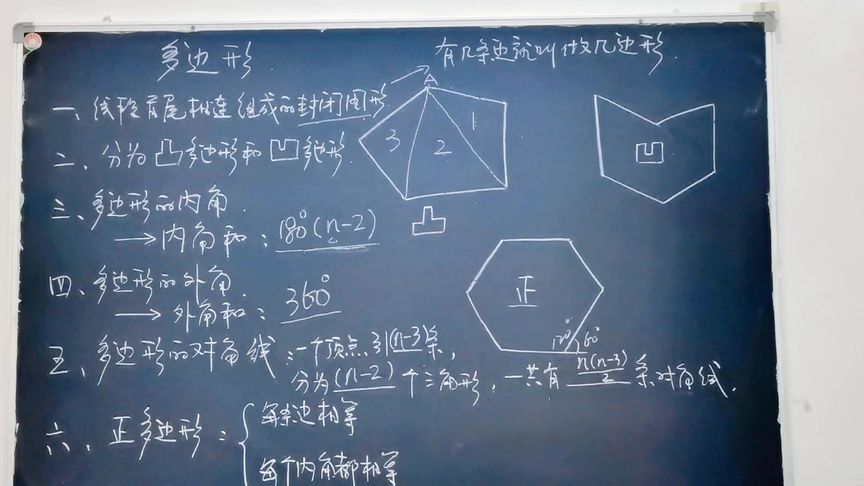 多边形
有几条边就叫做几边形.
一、线段首尾相连组成的封闭图形.
二、分为凸多边形和凹多边形.
A
3 2 1
凸
凹
三、多边形的内角.
→内角和：180°(n-2)
四、多边形的外角.
→外角和：360°
正
120° 60°
五、多边形的对角线：一个顶点引(n-3)条，
分为(n-2)个三角形，一共有n(n-3)/2条对角线.
六、正多边形：{每条边相等
每个内角都相等